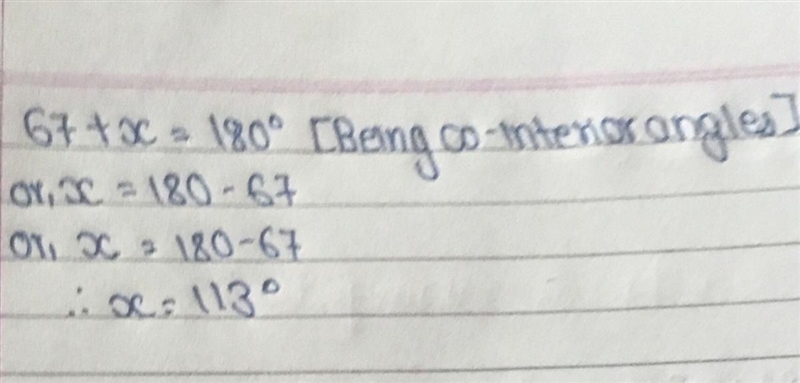 67 + x = 180° [Being co-interior angles]
or, x = 180 - 67
or, x = 180 - 67
∴ x = 113°